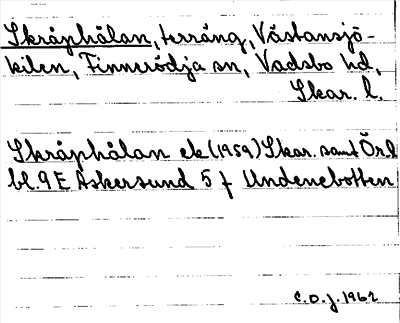 Skråphålan, terräng, Västansjö-
kilen, Finnerödja sn, Vadsbo hd,
Skar. l.
Skråphålan ek (1959) Skar. samt Ör. l
bl. 9 E Askersund 5 f Undenebotten
C.O.J. 1962